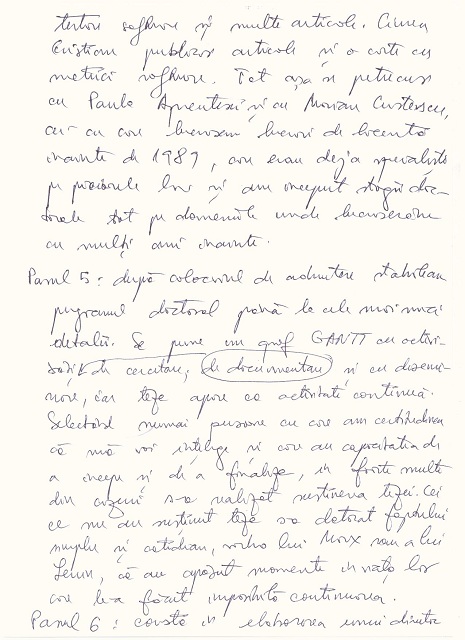 testare software și multe articole. Ciurea
Cristian publicase articole și o carte cu
metrici software. Tot așa se petrecuse
cu Paula și cu Marian Cristescu,
cei cu care lucrasem lucrări de licență
înainte de 1989, care erau deja specialiști
pe picioarele lor și au început stagii doc-
torale tot pe domeniile unde lucraserăm
cu mulți ani înainte.
Pasul 5: după colocviul de admitere stabileam
programul doctoral până la cele mai mici
detalii. Se pune un graf GANTT cu activi-
tăți de cercetare, de documentare și cu disemi-
nare, iar teza apare ca activitate continuă.
Selectând numai persoane cu care am certitudinea
că mă voi înțelege și care au capacitatea de
a începe și de a finaliza, în foarte multe
din cazuri s-a realizat susținerea tezei. Cei
ce nu au susținut teza s-a datorat faptului
simplu și cotidian, vorba lui Marx sau a lui
Lenin, că au apărut momente în viața lor
care le-a făcut imposibilă continuarea.
Pasul 6: constă în elaborarea unui director